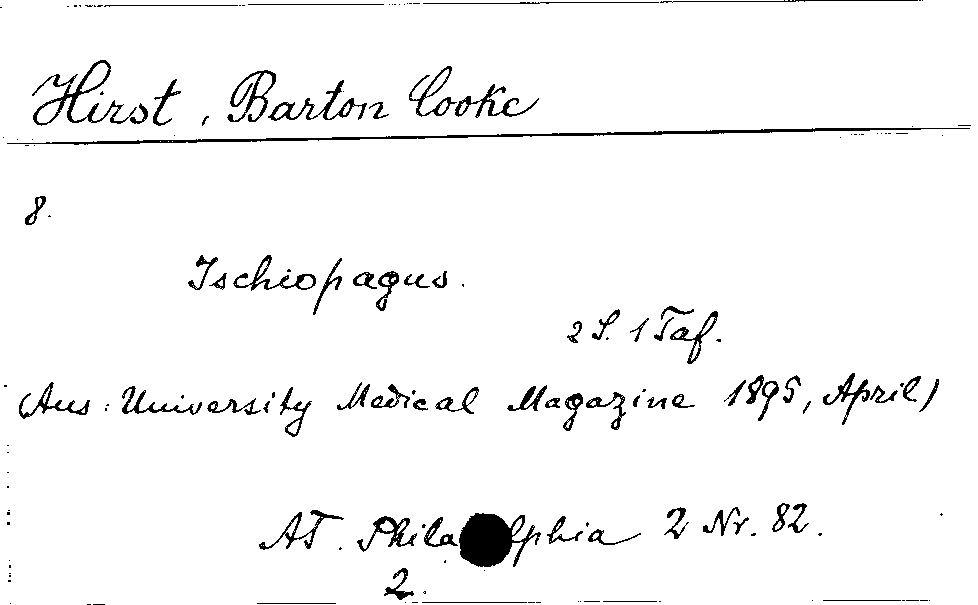 Hirst, Barton Cooke
8.
Ischiopagus.
2 S. 1 Taf.
(Aus: University Medical Magazine 1895, April)
AT. Philadelphia 2 Nr. 82.
2.